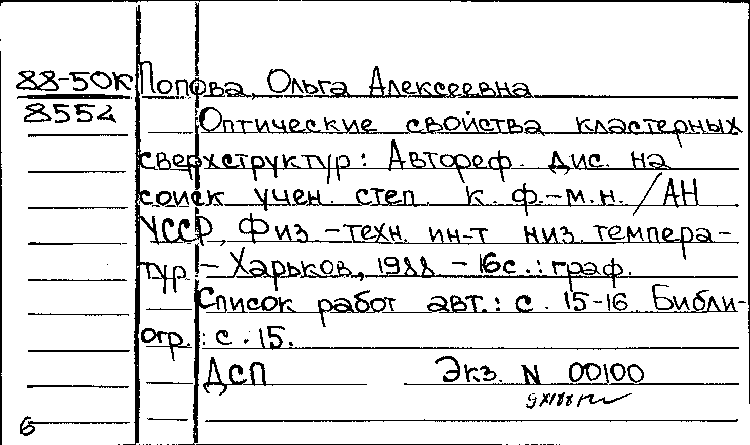 88-50К Попова, Ольга Алексеевна
8554
Оптические свойства кластерных
сверхструктур: Автореф. дис. на
соиск учен. степ. к. ф.-м.н. /АН
УССР, Физ.-техн. ин-т низ. темпера-
тур. - Харьков, 1988 - 16с.: граф.
Список работ авт.: с. 15-16. Библи-
огр.: с. 15.
ДСП Экз. N 00100
6